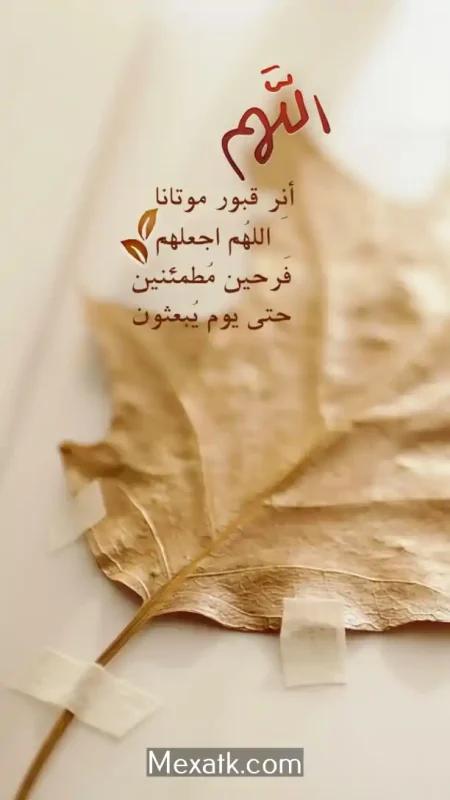 اللَّهم
أنِر قبور موتانا
اللهُم اجعلهم
فَرحين مُطمئنين
حتى يوم يُبعثون
Mexatk.com